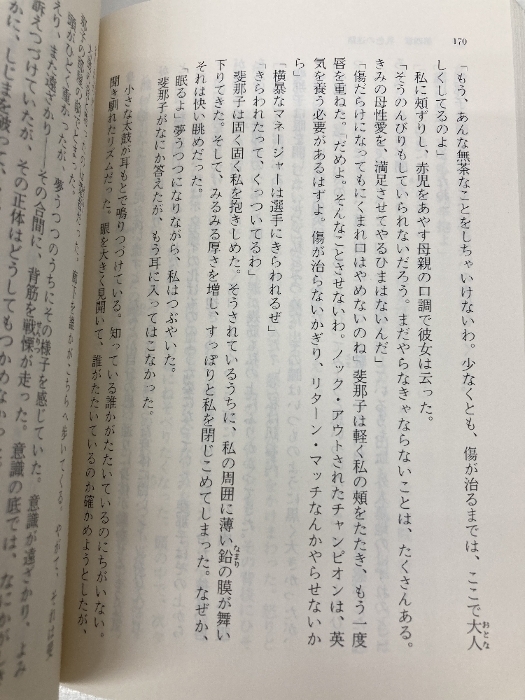 170
「もう、あんな無茶なことをしちゃいけないわ。少なくとも、傷が治るまでは、ここで大人
しくしてるのよ」
私に頬ずりし、赤児をあやす母親の口調で彼女は云った。
「そうのんびりもしていられないだろう。まだやらなきゃならないことは、たくさんある。
きみの母性愛を、満足させてやるひまはないんだ」
「傷だらけになってもにくまれ口はやめないのね」斐那子は軽く私の頬をたたき、もう一度
唇を重ねた。「だめよ。そんなことさせないわ。ノック・アウトされたチャンピオンは、英
気を養う必要があるはずよ。傷が治らないかぎり、リターン・マッチなんかやらせないか
ら」
「横暴なマネージャーは選手にきらわれるぜ」
「きらわれたって、くっついてるわ」
斐那子は固く固く私を抱きしめた。そうされているうちに、私の周囲に薄い鉛の膜が舞い
下りてきた。そして、みるみる厚さを増し、すっぽりと私を閉じこめてしまった。なぜか、
それは快い眺めだった。
「眠るよ」夢うつつになりながら、私はつぶやいた。
斐那子がなにか答えたが、もう耳に入ってはこなかった。
小さな太鼓が耳もとで鳴りつづけている。知っている誰かがたたいているのにちがいない。
聞き馴れたリズムだった。眼を大きく見開いて、誰がたたいているのか確かめようとしたが、
瞼がひどく重かったが、夢うつつのうちにその様子を感じていた。意識が遠ざかり、よみ
えり、また遠ざかり、その合間に、背筋を戦慄が走った。意識の底では、なにかが
訴えつづけていたが、その正体はどうしてもつかめなかった
かに、しじまを破って、